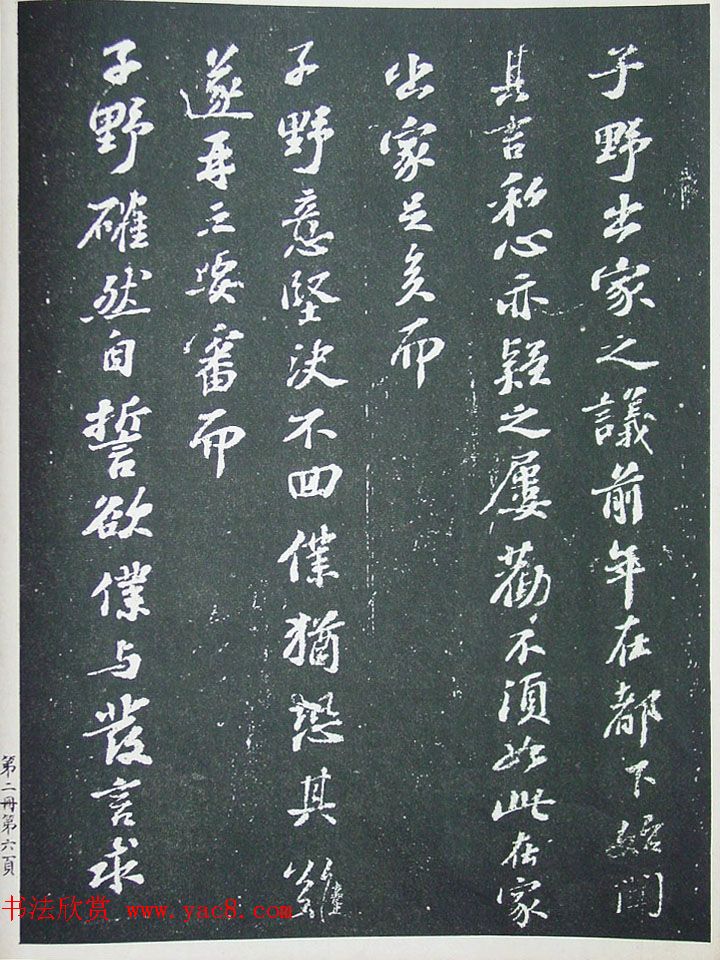 子野出家之議前年在都下始聞
其言私心亦疑之屢勸不須如此在家
出家足矣而
子野意堅決不回僕猶恐其
遂再三要審而
子野確然自誓欲僕与發言求
第二冊第六頁
书法欣赏 www.yac8.com